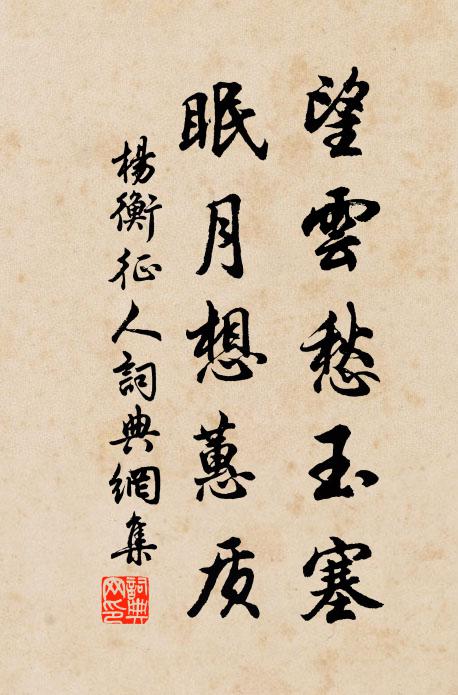 望雲愁玉塞
眠月想蕙质
楊衡征人詞典網集
詞典网印